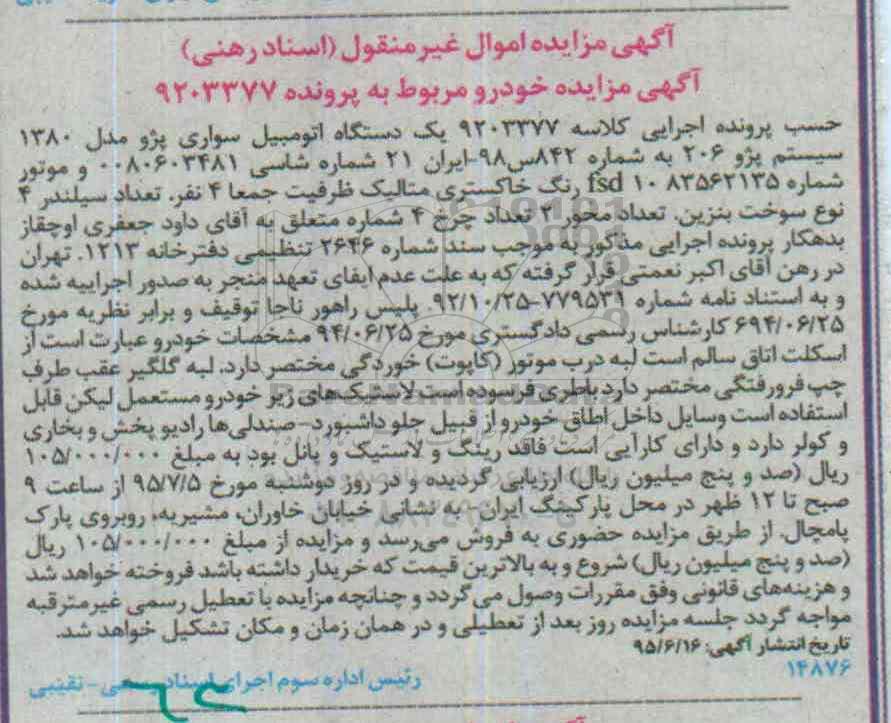 آگهی مزایده اموال غیرمنقول (اسناد رهنی)
آگهی مزایده خودرو مربوط به پرونده ۹۲۰۳۳۷۷
حسب پرونده اجرایی کلاسه ۹۲۰۳۳۷۷ یک دستگاه اتومبیل سواری پژو مدل ۱۳۸۰
سیستم پژو ۲۰۶ به شماره ۸۴۲س۹۸-ایران ۲۱ شماره شاسی ۰۰۸۰۶۰۳۴۸۱ و موتور
شماره ۸۳۵۶۲۱۳۵ ۱۰ fsd رنگ خاکستری متالیک ظرفیت جمعا ۴ نفر. تعداد سیلندر ۴
نوع سوخت بنزین. تعداد محور ۲ تعداد چرخ ۴ شماره متعلق به آقای داود جعفری اوچقاز
بدهکار پرونده اجرایی مذکور به موجب سند شماره ۲۶۴۶ تنظیمی دفترخانه ۱۲۱۳. تهران
در رهن آقای اکبر نعمتی قرار گرفته که به علت عدم ایفای تعهد منجر به صدور اجراییه شده
و به استناد نامه شماره ۷۷۹۵۳۹-۹۲/۱۰/۲۵ پلیس راهور ناجا توقیف و برابر نظریه مورخ
۶۹۴/۰۶/۲۵ کارشناس رسمی دادگستری مورخ ۹۴/۰۶/۲۵ مشخصات خودرو عبارت است از
اسکلت اتاق سالم است لبه درب موتور (کاپوت) خوردگی مختصر دارد. لبه گلگیر عقب طرف
چپ فرورفتگی مختصر دارد باطری فرسوده است لاستیک‌های زیر خودرو مستعمل لیکن قابل
استفاده است وسایل داخل اطاق خودرو از قبیل جلو داشبورد-صندلی‌ها رادیو پخش و بخاری
و کولر دارد و دارای کارآیی است فاقد رینگ و لاستیک و پانل بود به مبلغ ۱۰۵/۰۰۰/۰۰۰
ریال (صد و پنج میلیون ریال) ارزیابی گردیده و در روز دوشنبه مورخ ۹۵/۷/۵ از ساعت ۹
صبح تا ۱۲ ظهر در محل پارکینگ ایران- به نشانی خیابان خاوران، مشیریه، روبروی پارک
پامچال. از طریق مزایده حضوری به فروش می‌رسد و مزایده از مبلغ ۱۰۵/۰۰۰/۰۰۰ ریال
(صد و پنج میلیون ریال) شروع و به بالاترین قیمت که خریدار داشته باشد فروخته خواهد شد
و هزینه‌های قانونی وفق مقررات وصول می‌گردد و چنانچه مزایده با تعطیل رسمی غیرمترقبه
مواجه گردد جلسه مزایده روز بعد از تعطیلی و در همان زمان و مکان تشکیل خواهد شد.
تاریخ انتشار آگهی: ۹۵/۶/۱۶
۱۴۸۷۶
رئیس اداره سوم اجرای اسناد رسمی-نقیبی